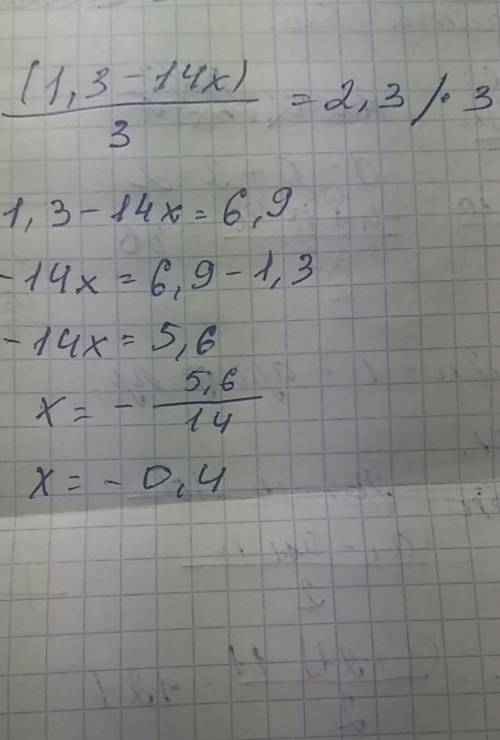 (1,3-14x)/3 = 2,3 /· 3
1,3-14x=6,9
-14x=6,9-1,3
-14x=5,6
x=-5,6/14
x=-0,4